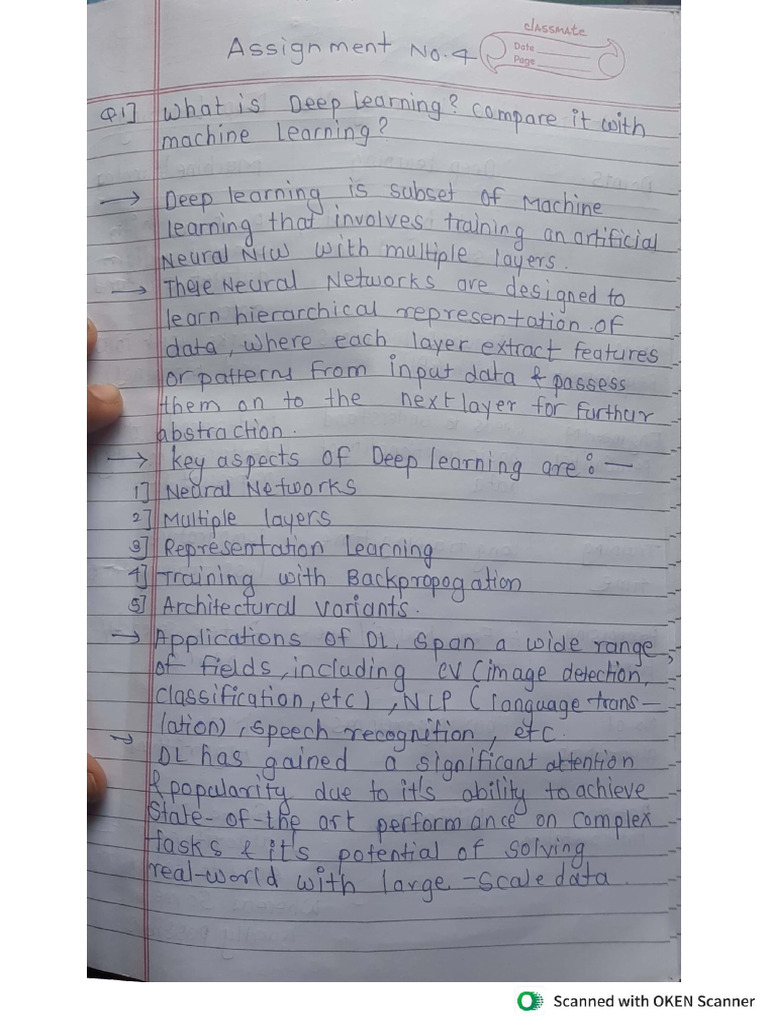 classmate
Assignment No. 4
Date
Page
Q1] What is Deep Learning? Compare it with
machine learning?
→ Deep learning is subset of Machine
learning that involves training an artificial
Neural N/W with multiple layers.
→ These Neural Networks are designed to
learn hierarchical representation of
data, where each layer extract features
or patterns from input data & passess
them on to the next layer for furthur
abstraction.
→ key aspects of Deep learning are :-
1] Nedral Networks
2] Multiple layers
3] Representation Learning
4] Training with Backpropogation
5] Architectural variants.
→ Applications of DL, span a wide range,
of fields, including CV (image detection,
classification, etc), NLP (language trans-
lation), speech recognition, etc.
→ DL has gained a significant attention
& popularity due to it's ability to achieve
state-of-the art performance on complex
tasks & it's potential of solving
real-world with large-scale data.
Scanned with OKEN Scanner